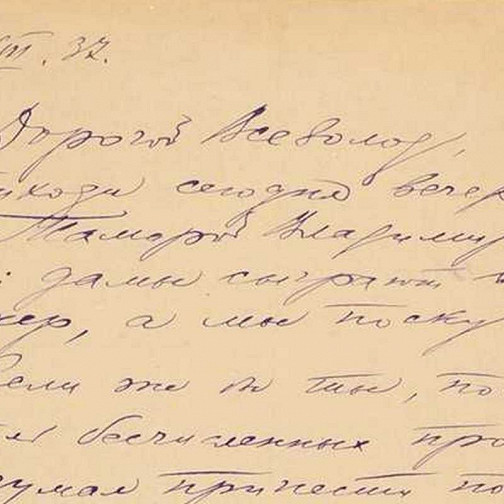 III.37.
Дорогой Всеволод,
иходи сегодня вечер
Тамарой Владими
дамы сыграют в
кер, а мы поску
Если же бы ты, по
бесчисленных про
думал принести по